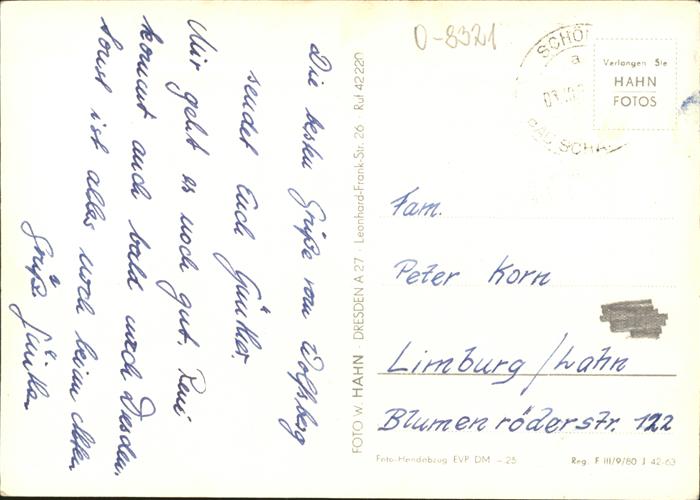 Die besten Grüße vom Wolfsberg
sendet Euch Günther.
Mir geht es noch gut. René
kommt auch bald nach Dresden,
sonst ist alles noch beim Alten
Grüße Günther
FOTO W. HAHN · DRESDEN A 27 · Leonhard-Frank-Str. 26 · Ruf 42220
O-8321
SCHÖN
a
BAD SCHA
Verlangen Sie
HAHN
FOTOS
Fam.
Peter Korn
Limburg/Lahn
Blumenröderstr. 122
Foto-Handabzug EVP DM -.25
Reg. F III/9/80 J 42-63